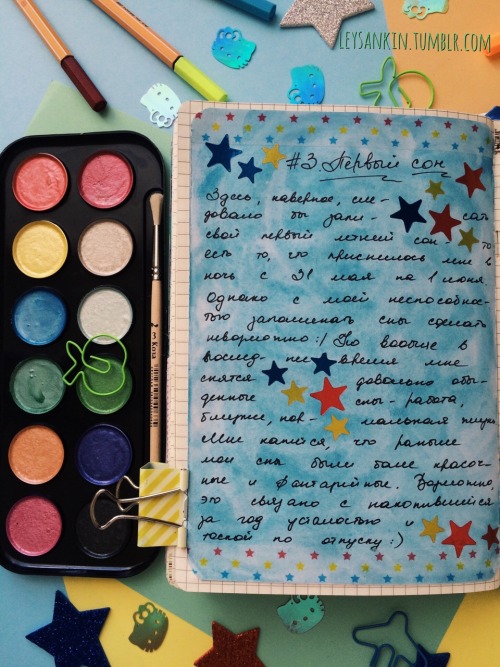 LEYSANKIN.TUMBLR.COM
#3. Первый сон
Здесь, наверное, сле-
довало бы запи- сать
свой первый летний сон - то
есть то, что приснилось мне в
ночь с 31 мая на 1 июня.
Однако с моей неспособнос-
тью запоминать сны сделать
невозможно :/ Но вообще в
послед- нее время мне
снятся довольно обы-
денные сны - работа,
близкие, нор- мальная
Мне кажется, что раньше
мои сны были более красоч-
ные и фантазийные. Возможно,
это связано с накопившейся
за год усталостью и
тоской по отпуску :)
Koza